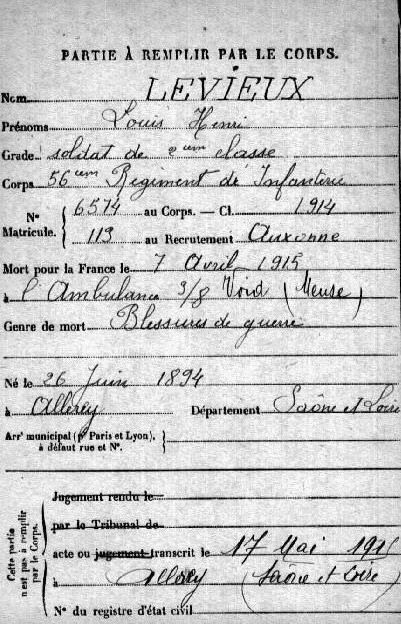 PARTIE À REMPLIR PAR LE CORPS.
Nom LEVIEUX
Prénoms Louis Henri
Grade soldat de 2eum classe
Corps 56eum Régiment de Infanterie
N° Matricule. { 6574 au Corps. — Cl. 1914
113 au Recrutement Auxonne
Mort pour la France le 7 Avril 1915
à l'Ambulance 3/8 Void (Meuse)
Genre de mort Blessures de guerre
Né le 26 Juin 1894
à Allerey Département Saône et Loire
Arrt municipal (pr Paris et Lyon), à défaut rue et N°.
Cette partie n'est pas à remplir par le Corps.
Jugement rendu le
par le Tribunal de
acte ou jugement transcrit le 17 Mai 1915
à Allerey (Saône et Loire)
N° du registre d'état civil